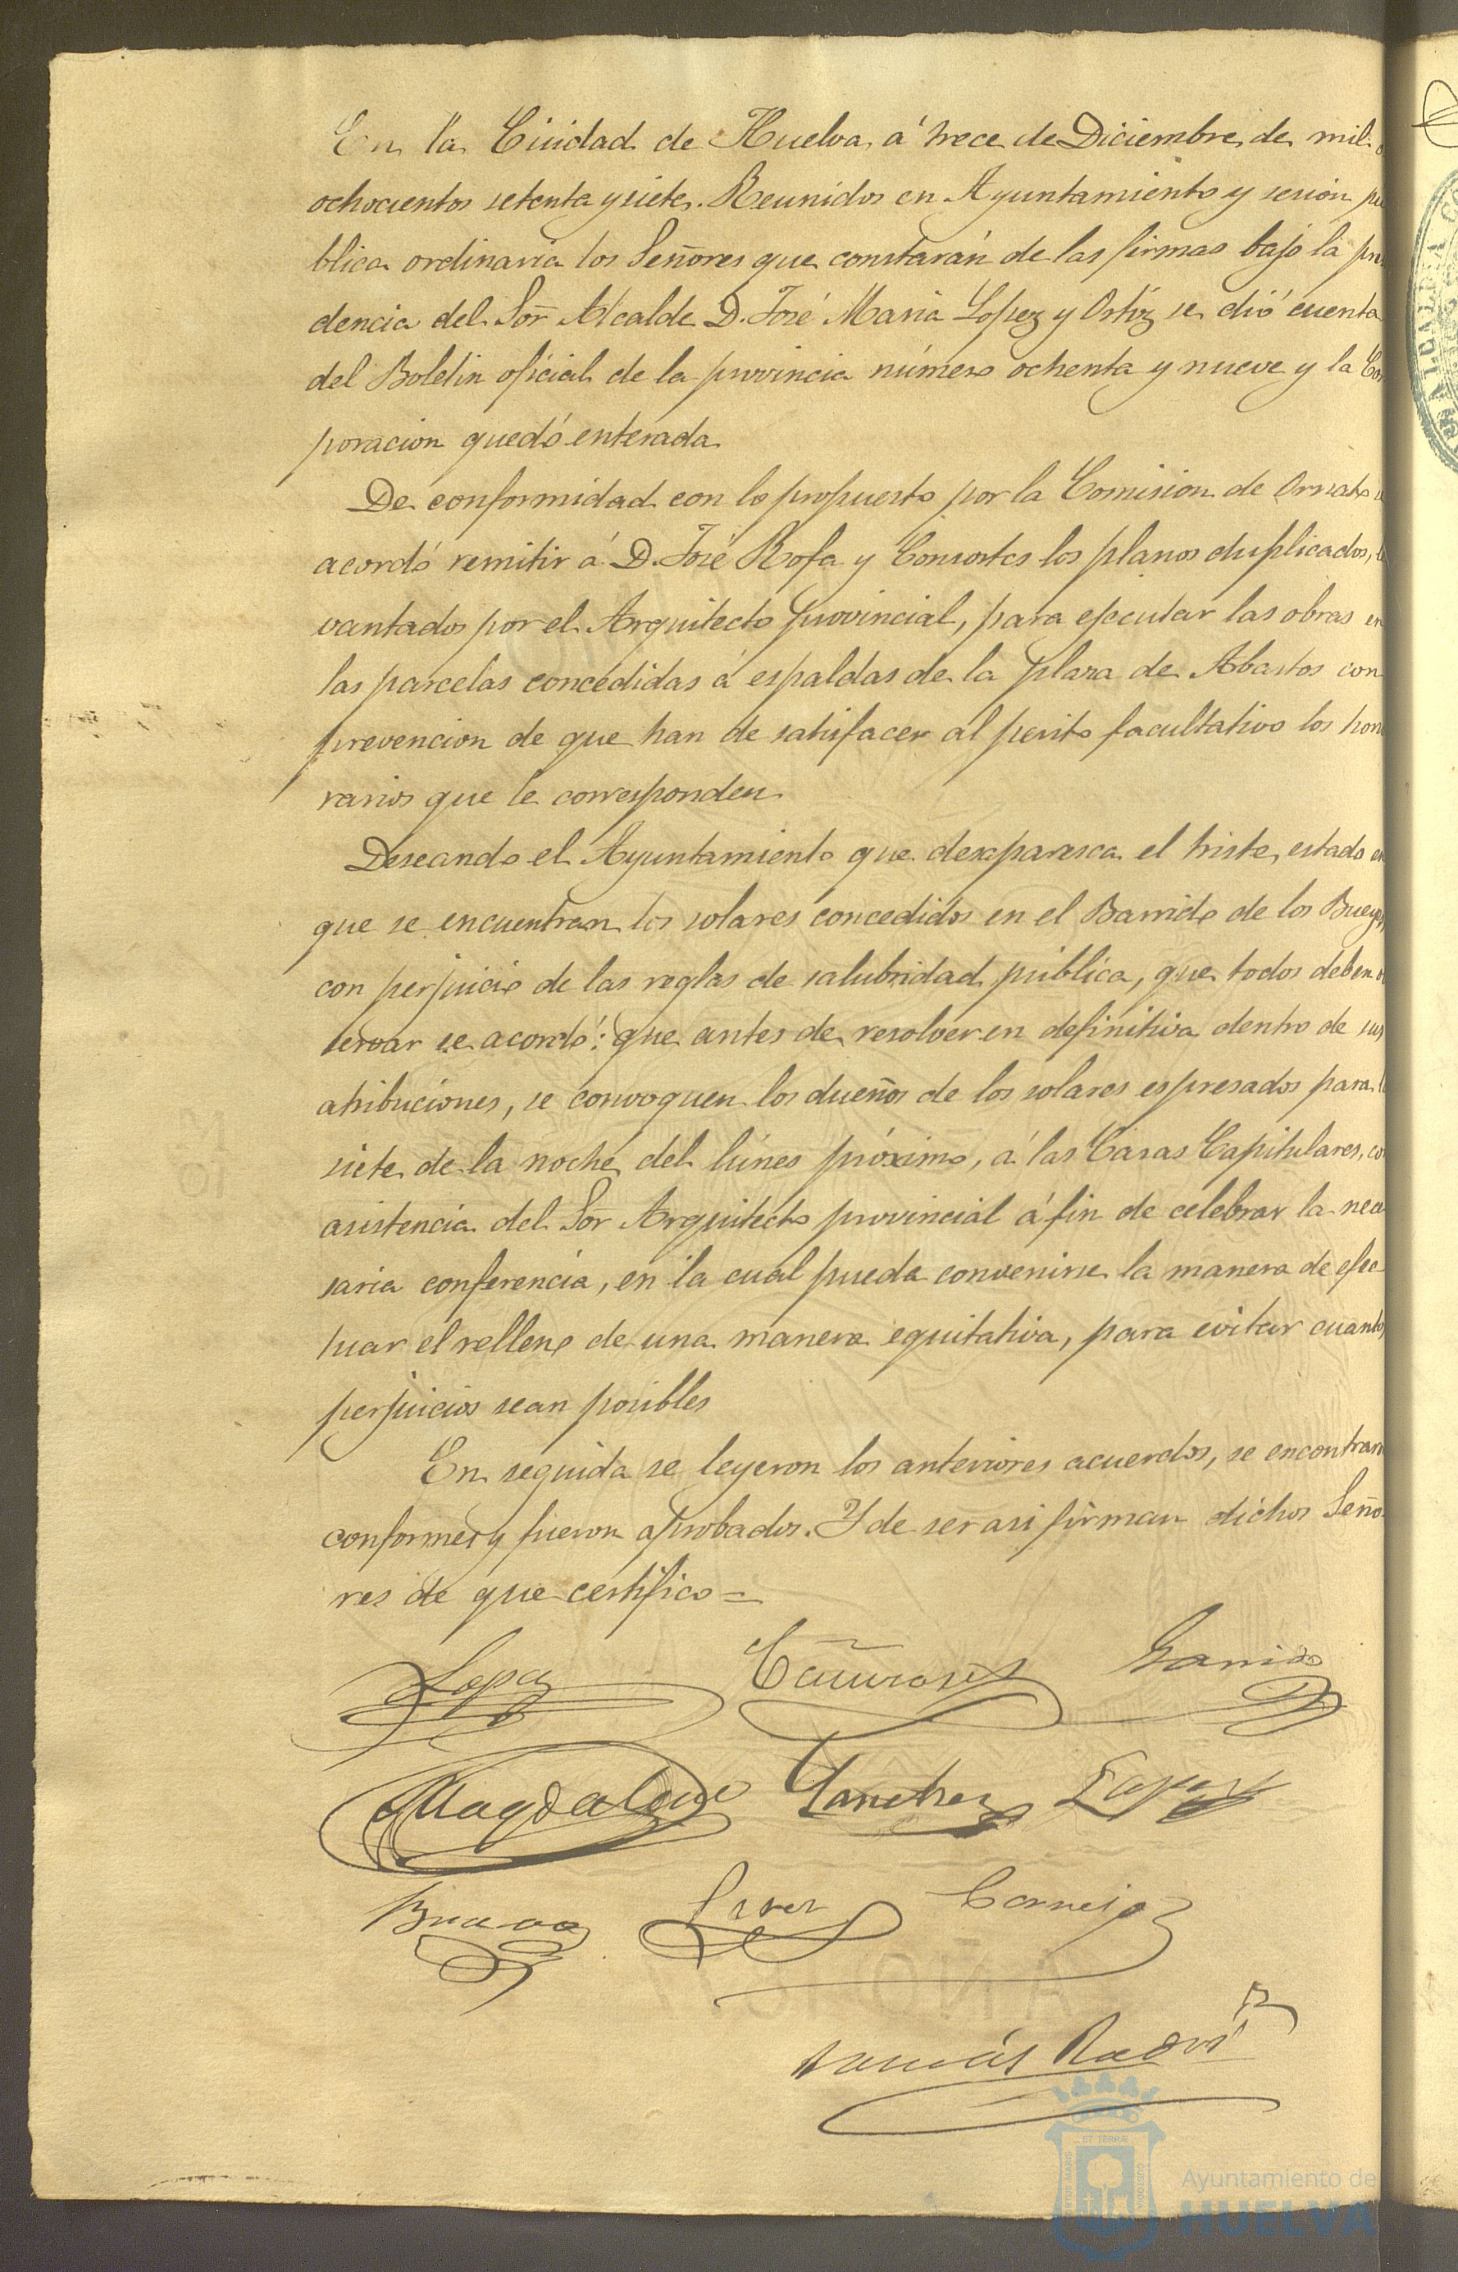 En la Ciudad de Huelva, á trece de Diciembre de mil
ochocientos setenta y siete. Reunidos en Ayuntamiento y sesion pu
blica ordinaria los Señores que constarán de las firmas bajo la pre
dencia del Sor Alcalde D. José Maria Lopez y Ortiz se dió cuenta
del Boletin oficial de la provincia número ochenta y nueve y la Cor
poracion quedó enterada.
De conformidad con lo propuesto por la Comision de Ornato
acordó remitir á D. José Rofa y Consortes los planos duplicados, le
vantados por el Arquitecto provincial, para ejecutar las obras en
las parcelas concedidas á espaldas de la plaza de Abastos con
prevencion de que han de satisfacer al perito facultativo los hono
rarios que le corresponden.
Deseando el Ayuntamiento que desaparesca el triste estado en
que se encuentran los solares concedidos en el Barrido de los Bueyes,
con perjuicio de las reglas de salubridad pública, que todos deben ob
servar se acordó: que antes de resolver en definitiva dentro de sus
atribuciones, se convoquen los dueños de los solares espresados para l
siete de la noche del lúnes próximo, á las Casas Capitulares, co
asistencia del Sor Arquitecto provincial á fin de celebrar la nece
saria conferencia, en la cual pueda convenirse la manera de efec
tuar el relleno de una manera equitativa, para evitar cuantos
perjuicios sean posibles
En seguida se leyeron los anteriores acuerdos, se encontraron
conformes y fueron aprobados. Y de ser asi firman dichos Seño
res de que certifico =
Lopez Garrido
Magdalena Sanchez Lopez
Cornejo
AÑO 1877
Ayuntamiento de
HUELVA